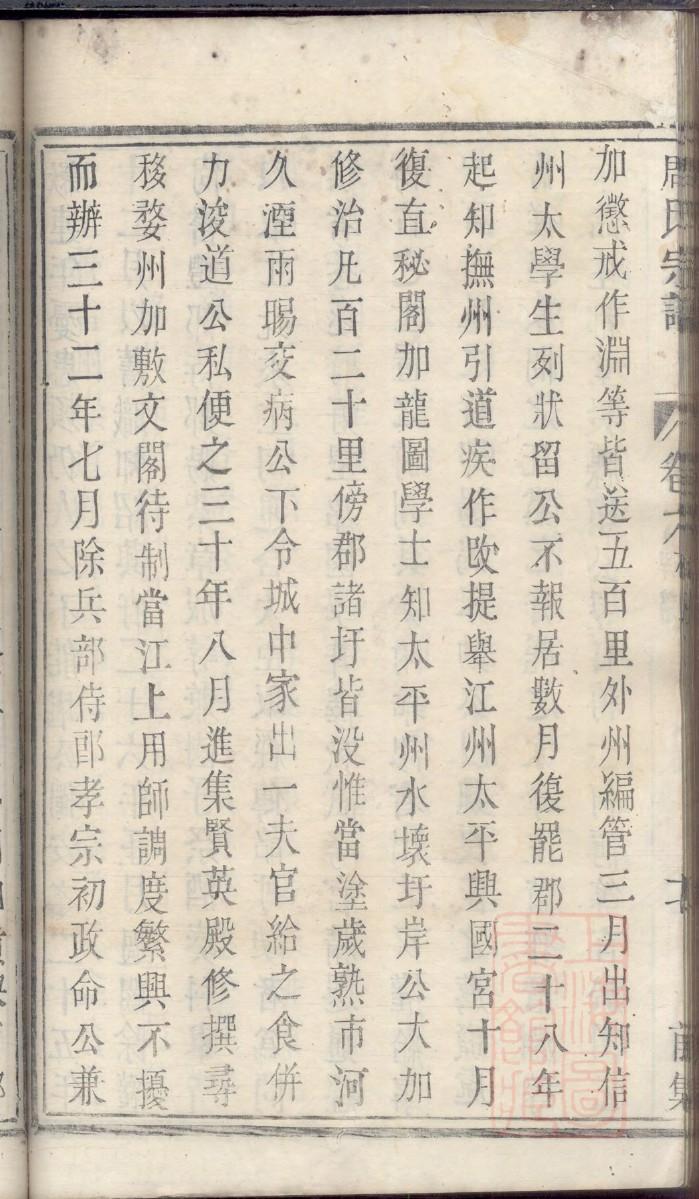 加懲戒作淵等皆送五百里外州編管三月出知信
州太學生列狀留公不報居數月復罷郡二十八年
起知撫州引道疾作改提舉江州太平興國宮十月
復直秘閣加龍圖學士知太平州水壞圩岸公大加
修治凡百二十里傍郡諸圩皆没惟當塗歲熟市河
久湮雨暘交病公下令城中家出一夫官給之食併
力浚道公私便之三十年八月進集賢英殿修撰尋
移婺州加敷文閣待制當江上用師調度繁興不擾
而辦三十二年七月除兵部侍郎孝宗初政命公兼
周氏宗譜
卷六